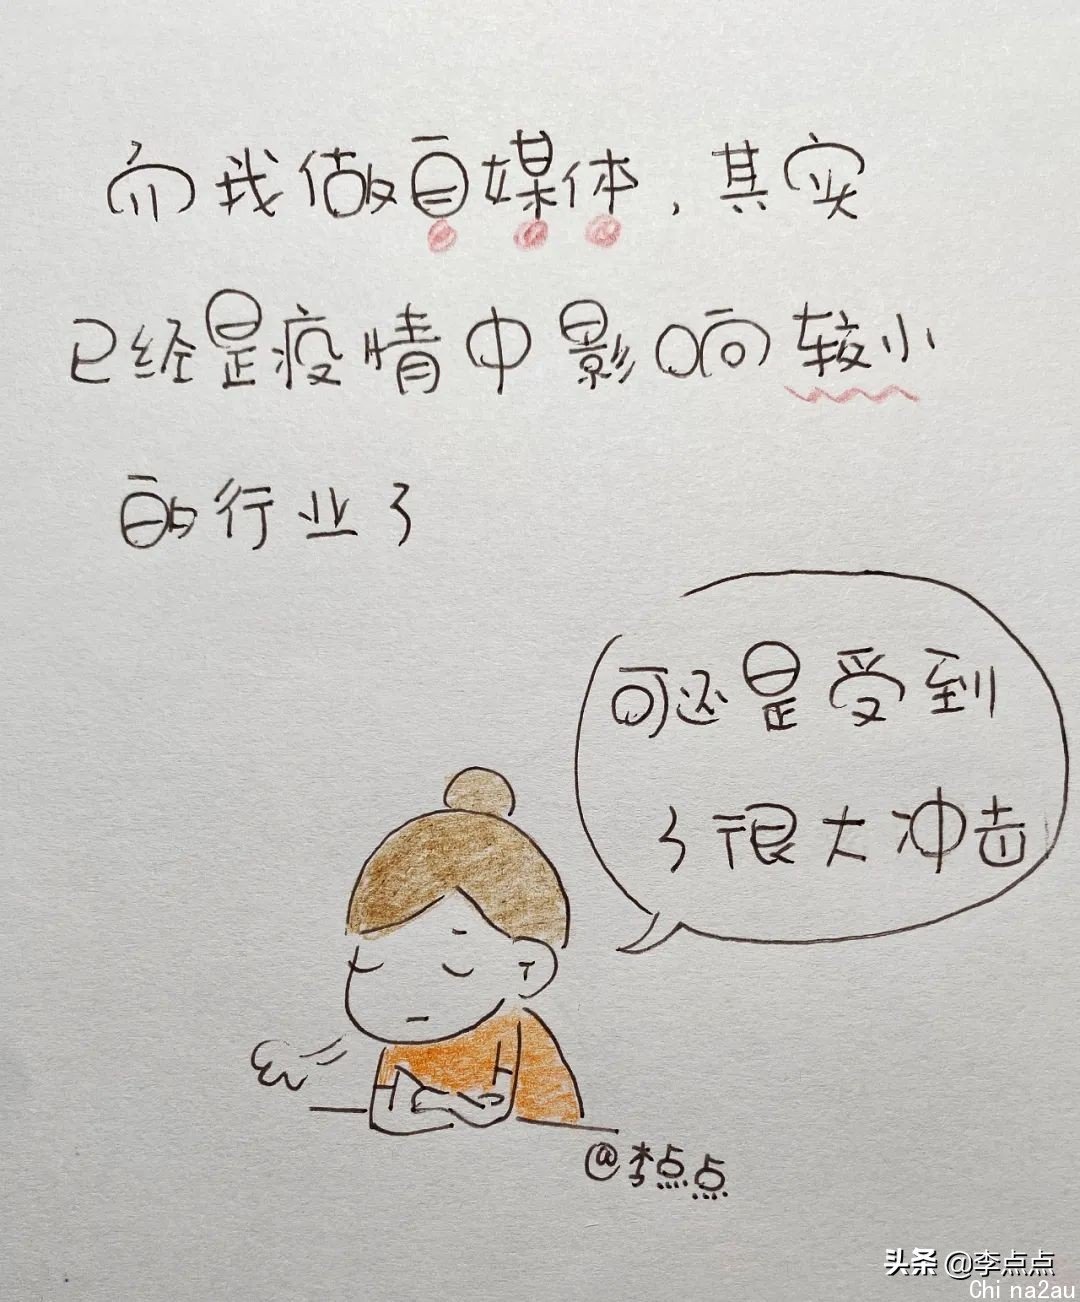 而我做自媒体，其实
已经是疫情中影响较小
的行业了
可还是受到
了很大冲击
@李点点
头条 @李点点
Chi na2au